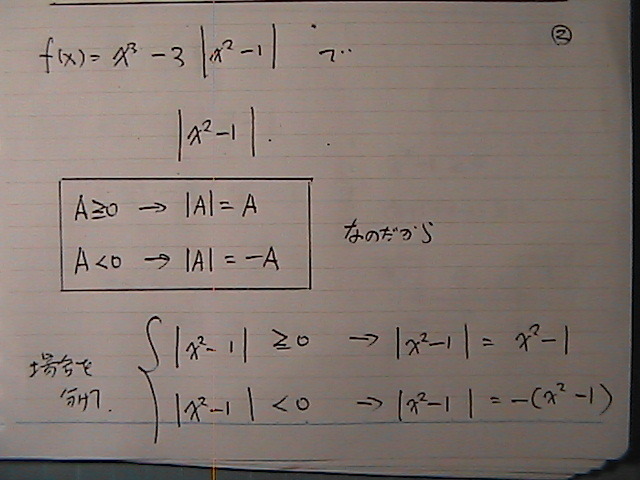 ②
f(x) = x³ - 3 |x² - 1| で…
|x² - 1|.
A≧0 → |A| = A
A<0 → |A| = -A
なのだから
場合を
分けて.
|x² - 1| ≧ 0 → |x² - 1| = x² - 1
|x² - 1| < 0 → |x² - 1| = -(x² - 1)